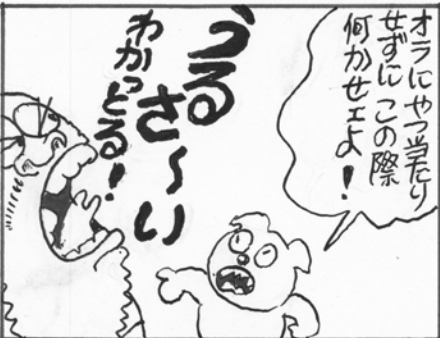 オラにやつ当たり
せずにこの際
何かせエよ！
うるさ〜い
わかっとる！